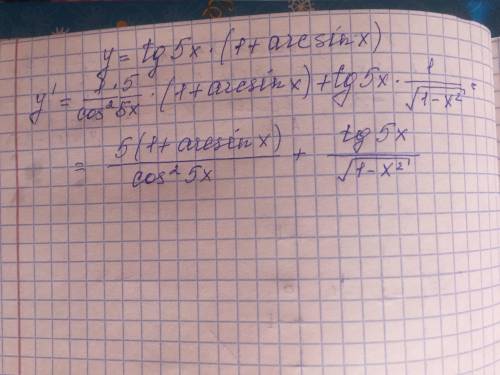 y = tg 5x · (1 + arcsin x)
y' = 1·5/cos² 5x · (1 + arcsin x) + tg 5x · 1/√(1-x²) =
= 5(1 + arcsin x)/cos² 5x + tg 5x/√(1-x²)